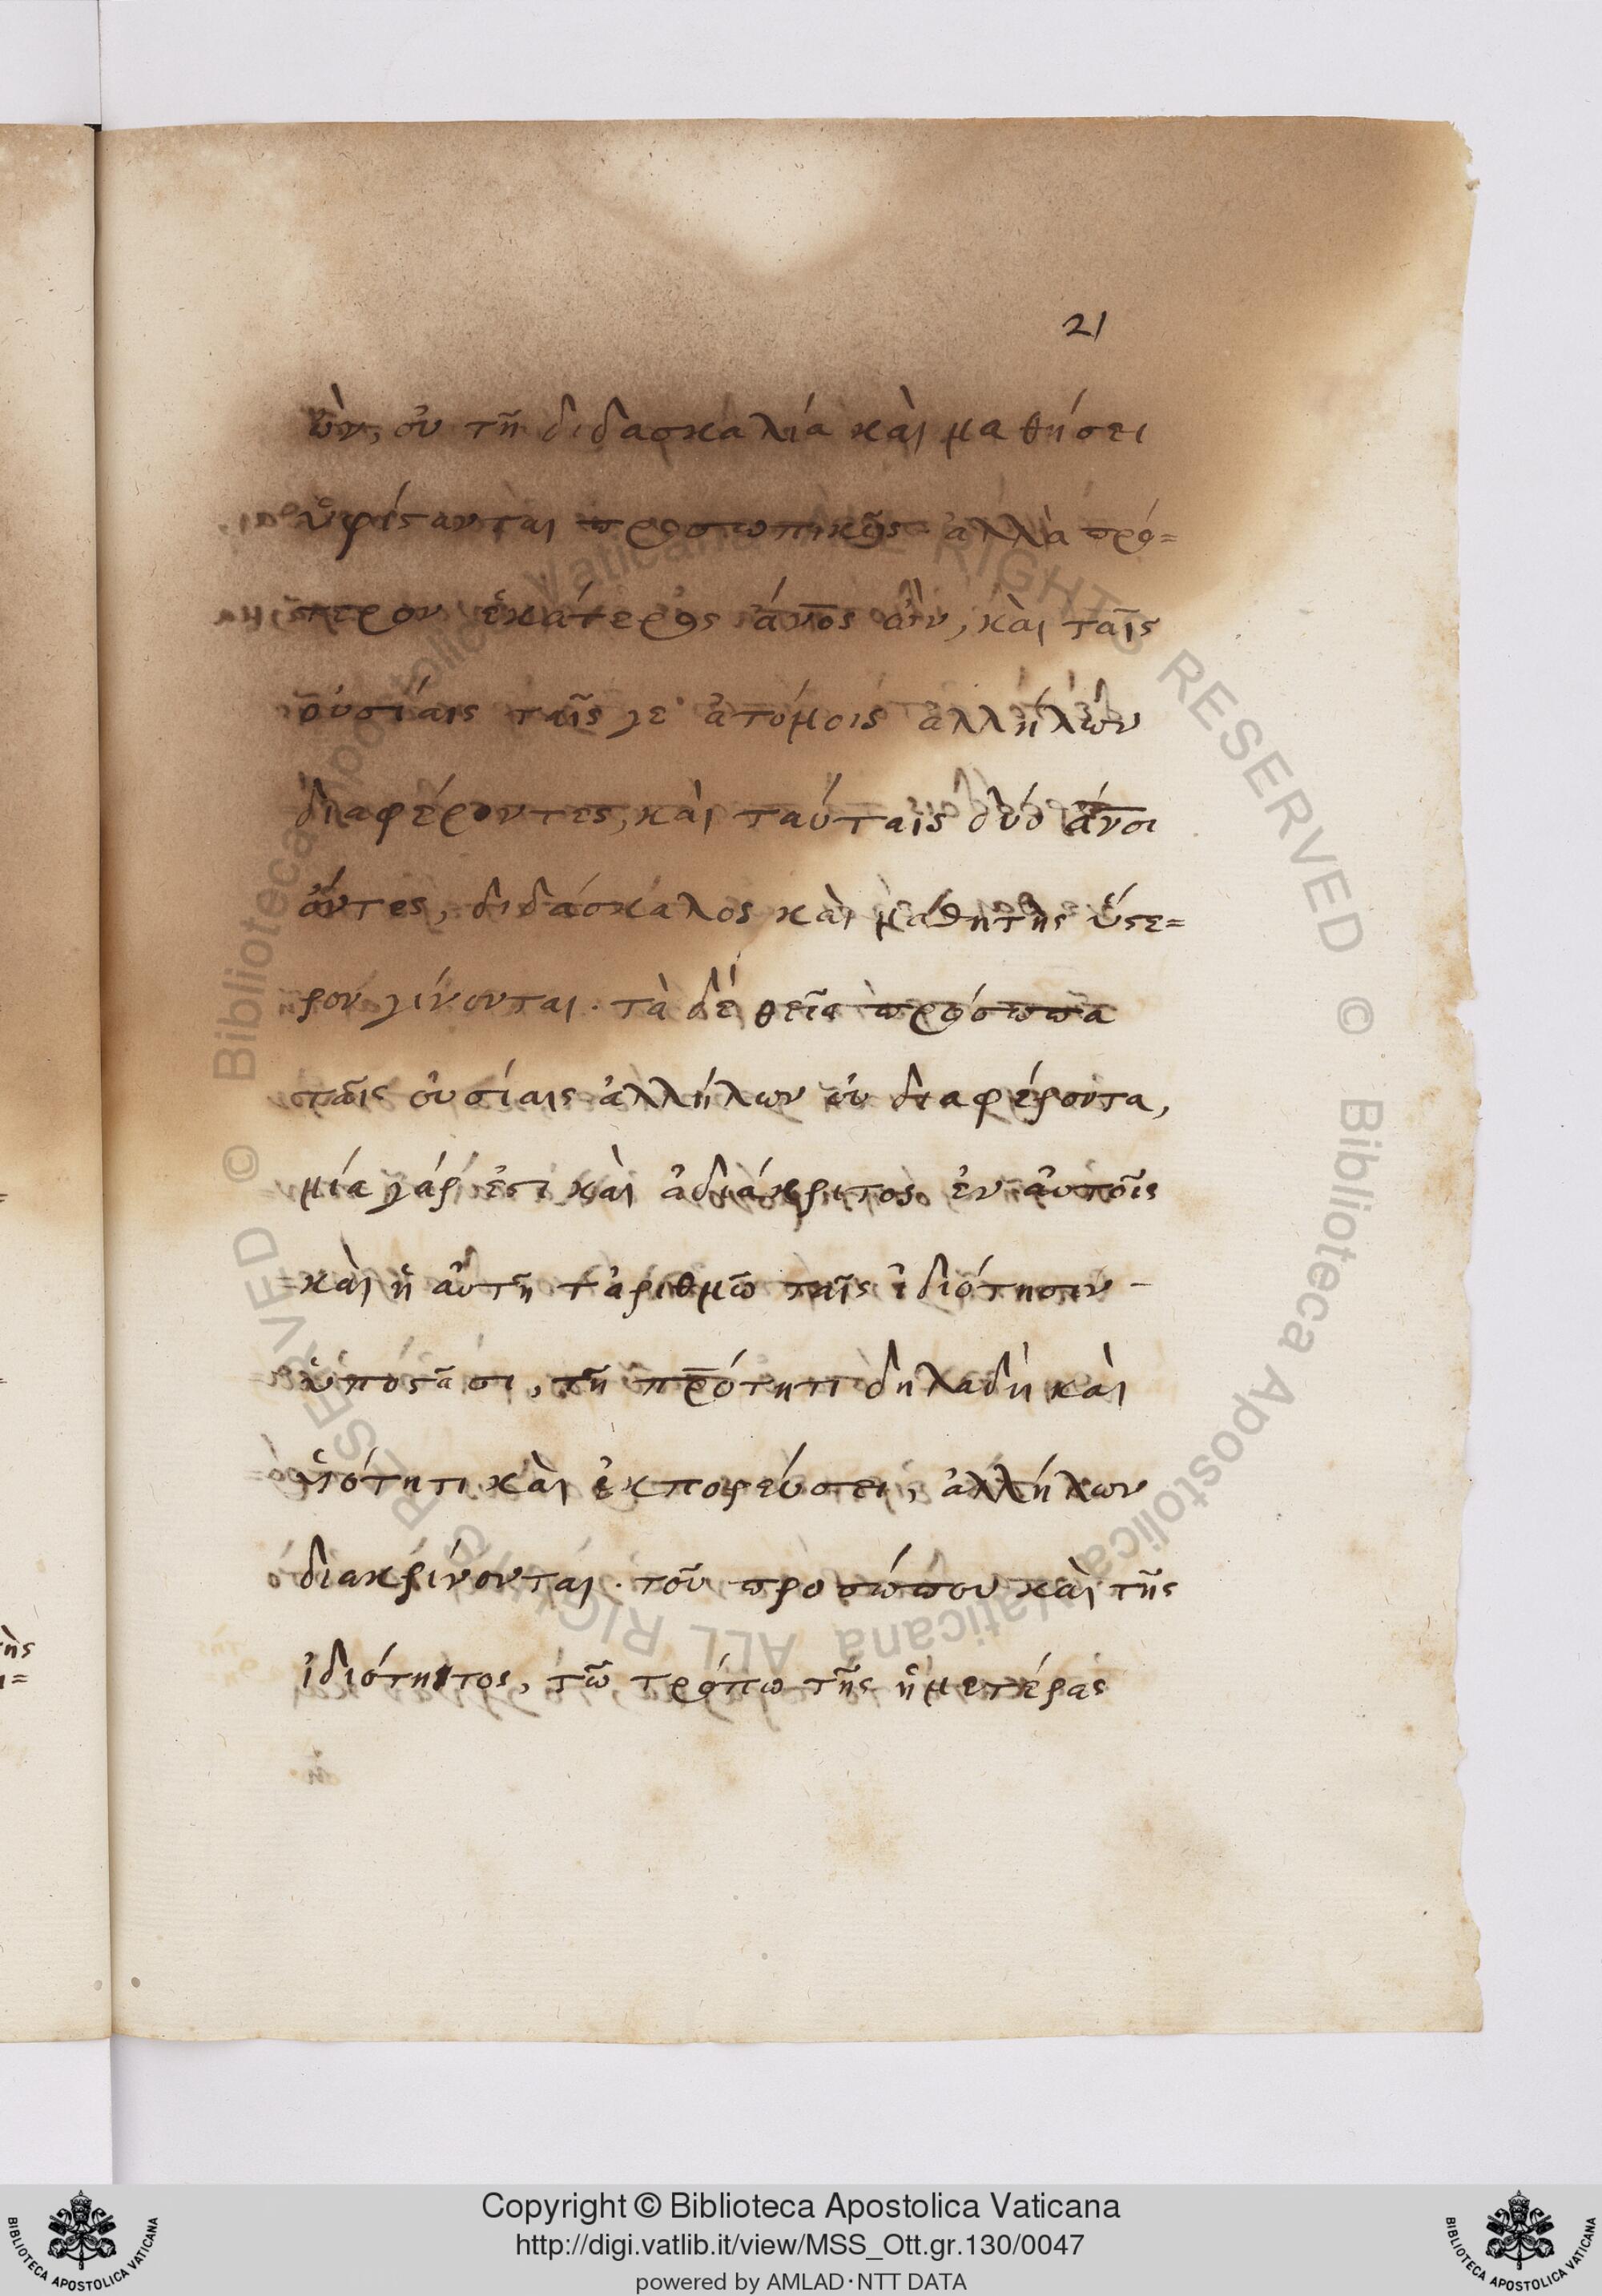 21
ὼν, οὐ τῆ διδασκαλία καὶ μαθήσει
ὑφίςανται προσωπικῶς· ἀλλὰ πρό=
τερον ἑκάτερος ἄν̅ος ὢν, καὶ ταῖς
οὐσίαις ταῖς γε ἀτόμοις ἀλλήλων
διαφέροντες, καὶ ταύταις δύο ἄν̅οι
ὄντες, διδάσκαλος καὶ μαθητὴς ὕςε=
ρον γίνονται. τὰ δέ θεῖα πρόσωπα
ταῖς οὐσίαις ἀλλήλων οὐ διαφέροντα,
μία γάρ ἐςι καὶ ἀδιάκριτος ἐν αὐτοῖς
καὶ ἡ αὐτῆ τἀριθμῶ ταῖς ἰδιότησιν
ὑποςᾶσι, τῆ πρ̅ότητι δηλαδὴ καὶ
ὑιότητι καὶ ἐκπορεύσει, ἀλλήλων
διακρίνονται. τοῦ προσώπου καὶ τῆς
ἰδιότητος, τῶ τρόπω τῆς ἡμετέρας
Copyright © Biblioteca Apostolica Vaticana
http://digi.vatlib.it/view/MSS_Ott.gr.130/0047
powered by AMLAD·NTT DATA
BIBLIOTECA APOSTOLICA VATICANA
BIBLIOTECA APOSTOLICA VATICANA
© Biblioteca Apostolica Vaticana ALL RIGHTS RESERVED © Biblioteca Apostolica Vaticana ALL RIGHTS RESERVED